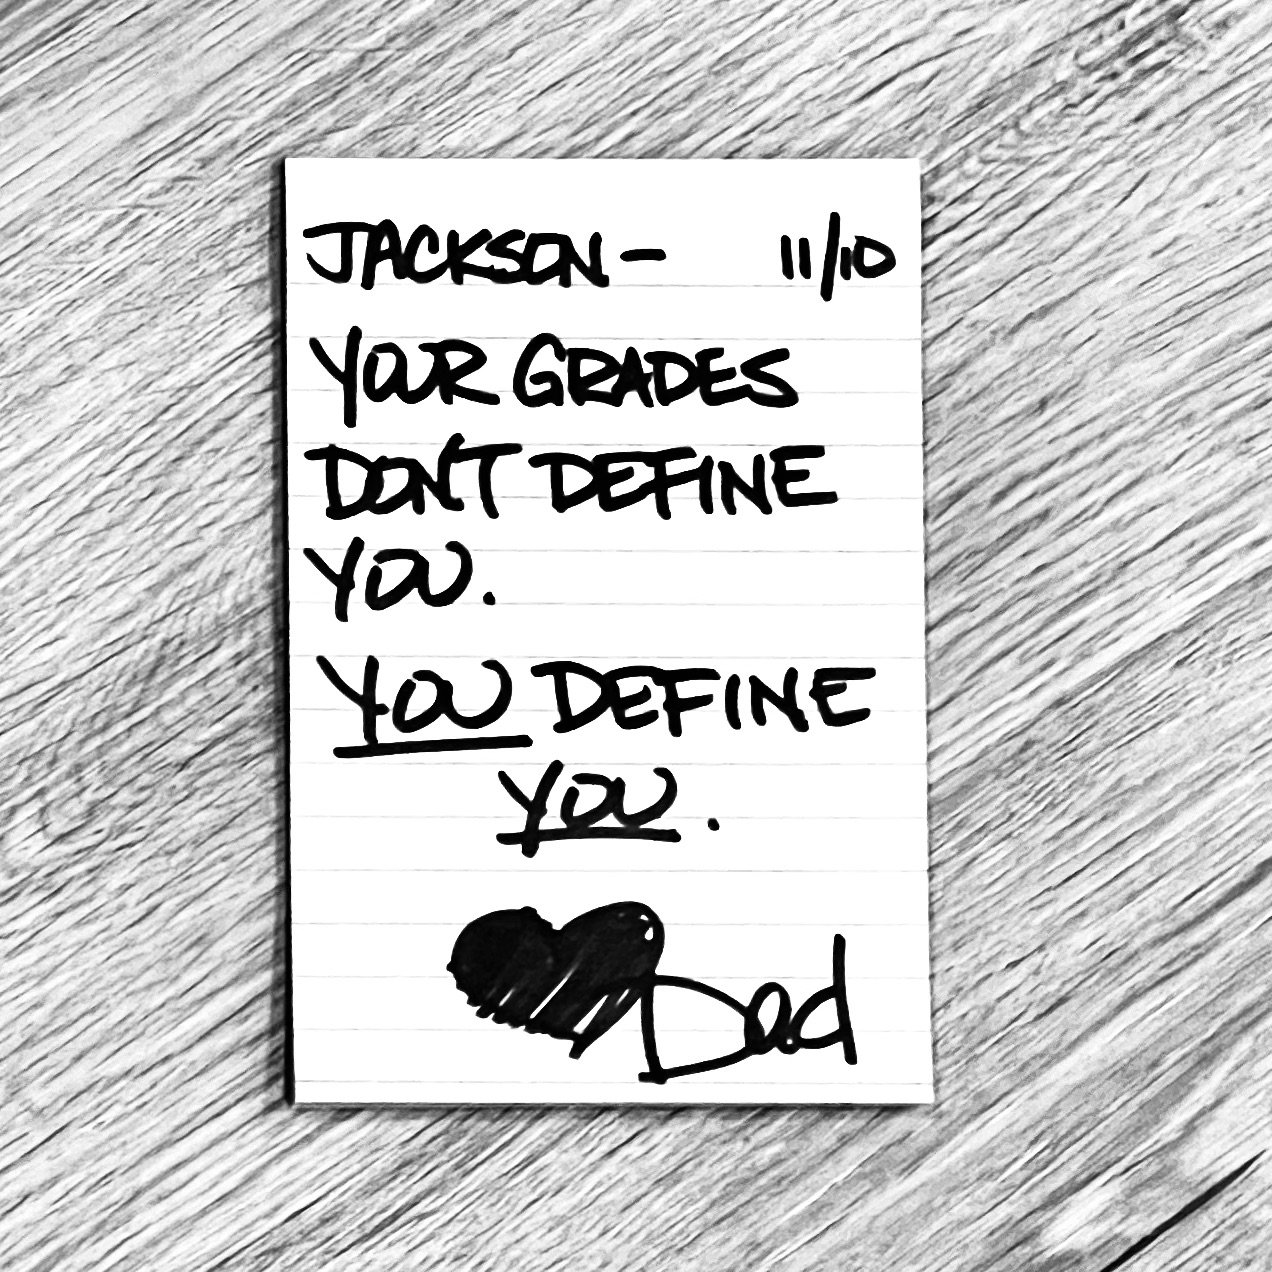 JACKSON – 11/10
YOUR GRADES
DON'T DEFINE
YOU.
YOU DEFINE
YOU.
Dad